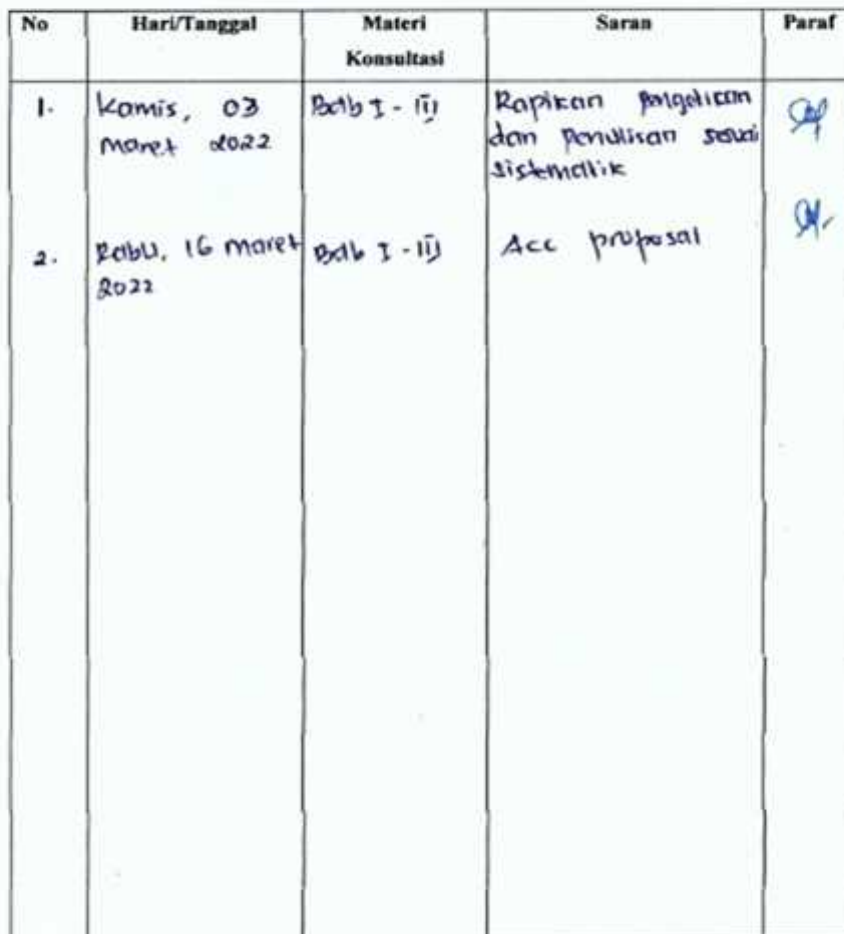 No Hari/Tanggal Materi Konsultasi Saran Paraf
1. Kamis, 03 Maret 2022
Bab I - III
Rapikan pengetikan
dan penulisan sesuai
sistematik
2. Rabu, 16 Maret
2022
Bab I - III
Acc proposal